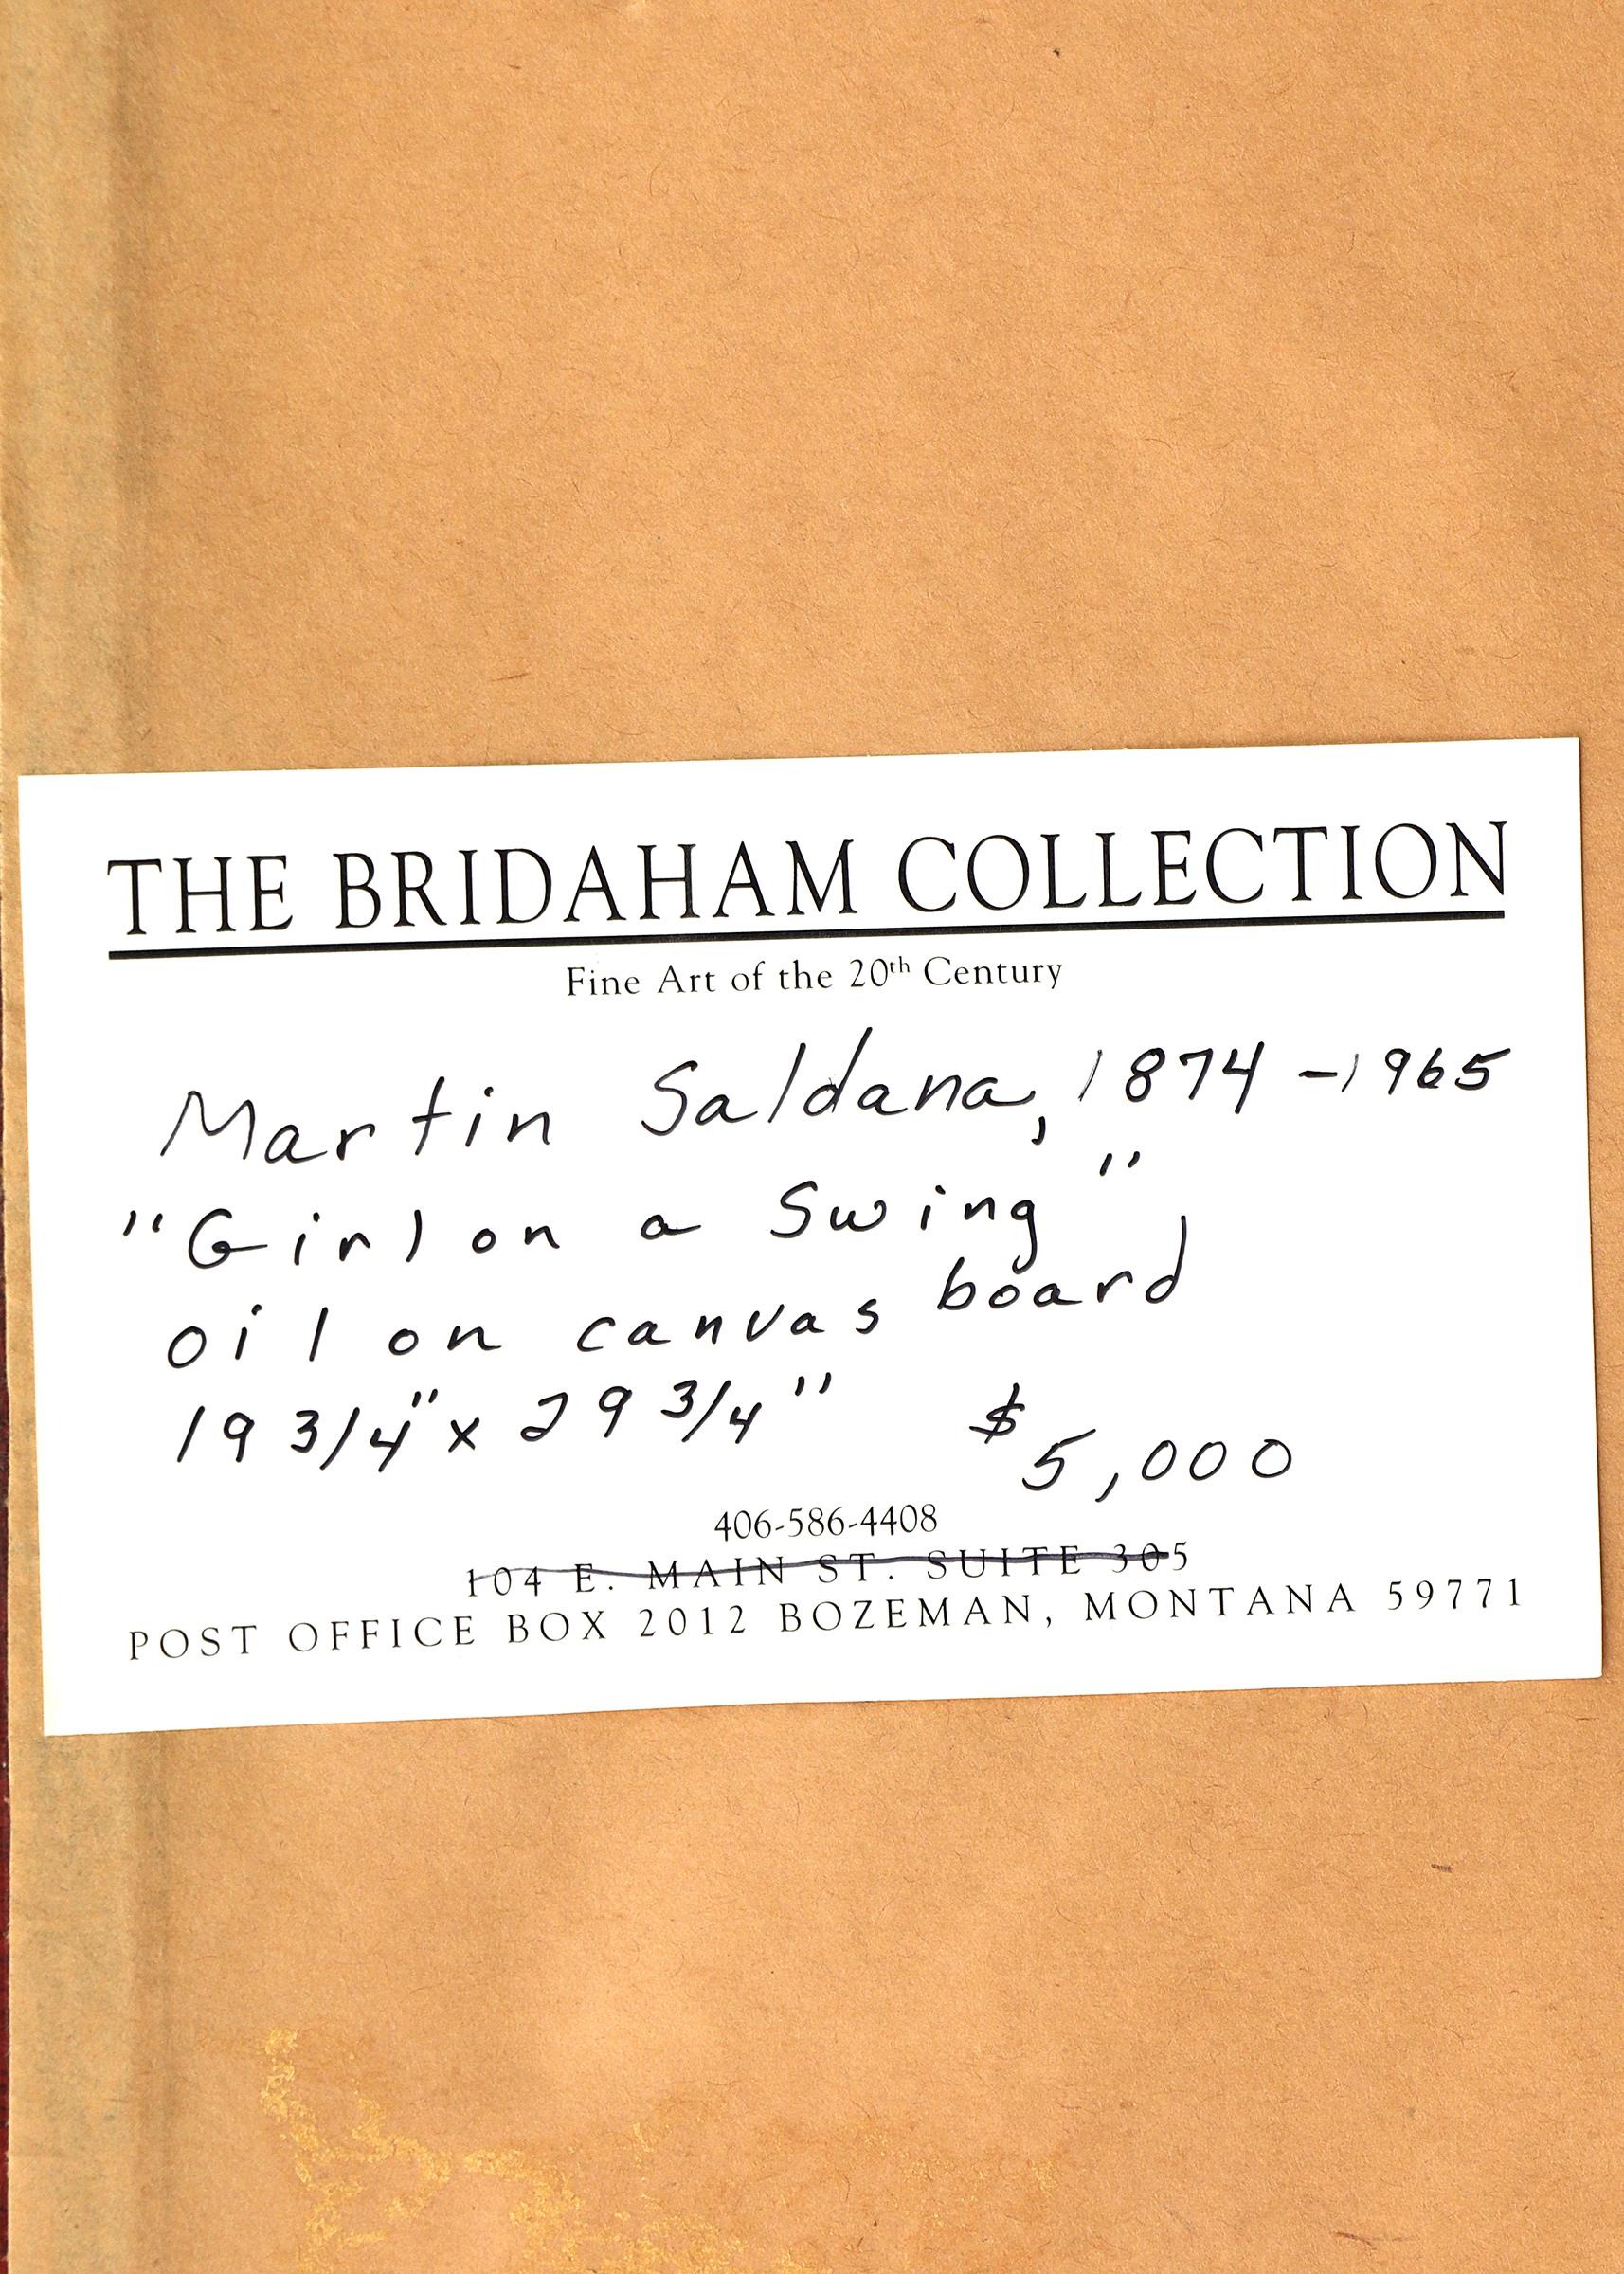 THE BRIDAHAM COLLECTION
Fine Art of the 20th Century
Martin Saldana, 1874-1965
"Girl on a Swing"
oil on canvas board
19 3/4" x 29 3/4" $5,000
406-586-4408
104 E. MAIN ST. SUITE 305
POST OFFICE BOX 2012 BOZEMAN, MONTANA 59771